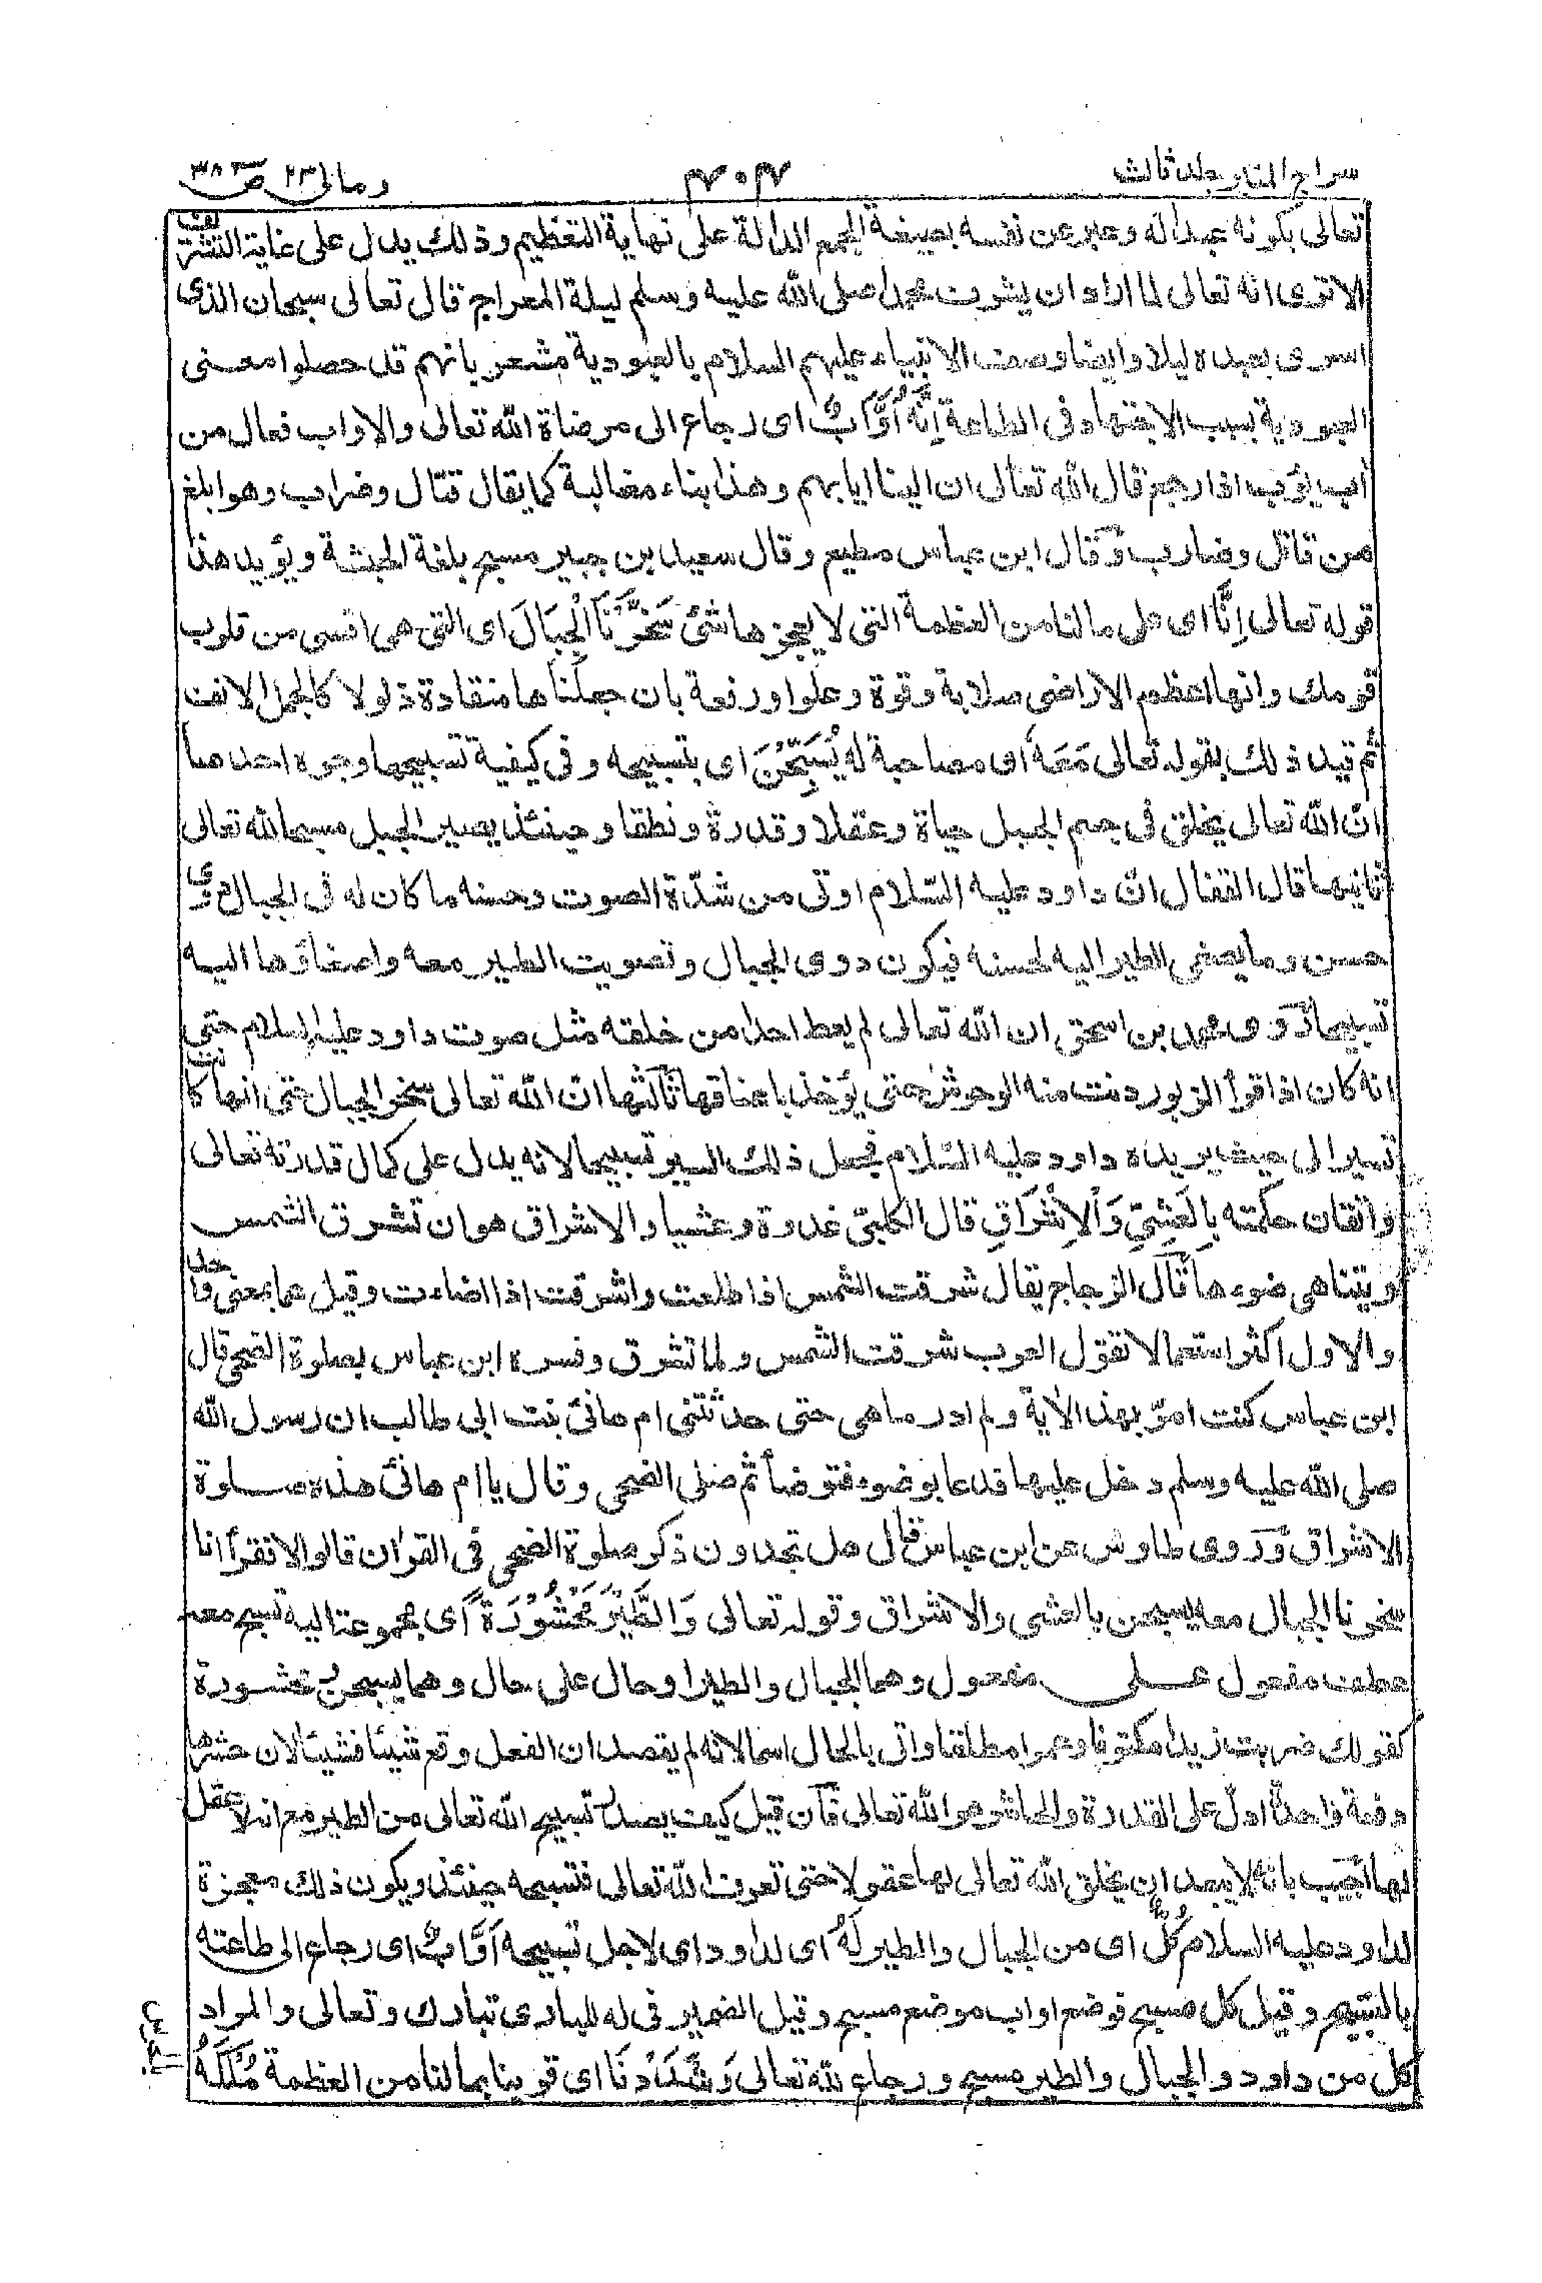 سراج المنير جلد ثالث
٤٠٤
ومالى ٢٣ ص ٣٨
تعالى بكونه عبدا له وعبر عن نفسه بصيغة الجمع الدالة على نهاية التعظيم وذلك يدل على غاية التشريف
الا ترى انه تعالى لما اراد ان يشرف محمدا صلى الله عليه وسلم ليلة المعراج قال تعالى سبحان الذى
اسرى بعبده ليلا وايضا وصف الانبياء عليهم السلام بالعبودية مشعر بانهم قد حصلوا معنى
العبودية بسبب الاجتهاد فى الطاعة اِنَّهٗۤ اَوَّابٌ اى رجاع الى مرضاة الله تعالى والاواب فعال من
آب يؤب اذا رجع قال الله تعالى ان الينا ايابهم وهذا بناء مغالبة كما يقال قتال وضراب وهو ابلغ
من قاتل وضارب وقال ابن عباس مطيع وقال سعيد بن جبير مسبح بلغة الحبشة ويؤيد هذا
قوله تعالى اِنَّا اى على ما لنا من العظمة التى لا يعجزها شئ سَخَّرْنَا الْجِبَالَ اى التى هى اقسى من قلوب
قومك وانها اعظم الاراضى صلابة وقوة وعلوا ورفعة بان جعلناها منقادة ذلولا كالجمل الانف
ثم قيد ذلك بقوله تعالى مَعَهٗ اى مصاحبة له يُسَبِّحْنَ اى بتسبيحه وفى كيفية تسبيحها وجوه احدها
ان الله تعالى يخلق فى جسم الجبل حياة وعقلا وقدرة ونطقا وحينئذ يصير الجبل مسبحا لله تعالى
ثانيها قال القفال ان داود عليه السلام اوتى من شدّة الصوت وحسنه ما كان له فى الجبال دوى
حسن وما يصغى الطير اليه لحسنه فيكون دوى الجبال وتصويت الطير معه واصغاؤها اليه
تسبيحا وروى محمد بن اسحق ان الله تعالى لم يعط احدا من خلقه مثل صوت داود عليه السلام حتى
انه كان اذا قرأ الزبور دنت منه الوحوش حتى يؤخذ باعناقها ثالثها ان الله تعالى سخر الجبال حتى انها كانت
تسير الى حيث يريده داود عليه السلام فجعل ذلك السير تسبيحا لانه يدل على كمال قدرته تعالى
واتقان حكمته بِالْعَشِيِّ وَالْاِشْرَاقِ قال الكلبى غدوة وعشيا والاشراق هو ان تشرق الشمس
ويتناهى ضوءها قال الزجاج يقال شرقت الشمس اذا طلعت واشرقت اذا اضاءت وقيل هما بمعنى واحد
والاول اكثر استعمالا تقول العرب شرقت الشمس ولما تشرق وفسره ابن عباس بصلوة الضحى قال
ابن عباس كنت امرّ بهذه الاية ولم ادر ما هى حتى حدثتنى ام هانئ بنت ابى طالب ان رسول الله
صلى الله عليه وسلم دخل عليها فدعا بوضوء فتوضأ ثم صلى الضحى وقال يا ام هانئ هذه صلوة
الاشراق وروى طاوس عن ابن عباس قال هل تجدون ذكر صلوة الضحى فى القران قالوا لا فقرأ انا
سخرنا الجبال معه يسبحن بالعشى والاشراق وقوله تعالى وَالطَّيْرَ مَحْشُوْرَةً اى مجموعة اليه تسبح معه
عطف مفعول على مفعول وهما الجبال والطير او حال على حال وهما يسبحن محشورة
كقولك ضربت زيدا مكتوفا وعمرا مطلقا واتى بالحال اسما لانه لم يقصد ان الفعل وقع شيئا فشيئا لان حشرها
دفعة واحدة ادل على القدرة والحاشر هو الله تعالى فان قيل كيف يصدر تسبيح الله تعالى من الطير مع انه لا عقل
لها اجيب بانه لا يبعد ان يخلق الله تعالى لها عقولا حتى تعرف الله تعالى فتسبحه حينئذ ويكون ذلك معجزة
لداود عليه السلام كُلٌّ اى من الجبال والطير لَهٗ اى لداود اى لاجل تسبيحه اَوَّابٌ اى رجاع الى طاعته
بالتسبيح وقيل كل مسبح فوضع اواب موضع مسبح وقيل الضمير فى له للبارى تبارك وتعالى والمراد
كل من داود والجبال والطير مسبح ورجاع لله تعالى وَشَدَدْنَا اى قوينا بما لنا من العظمة مُلْكَهٗ